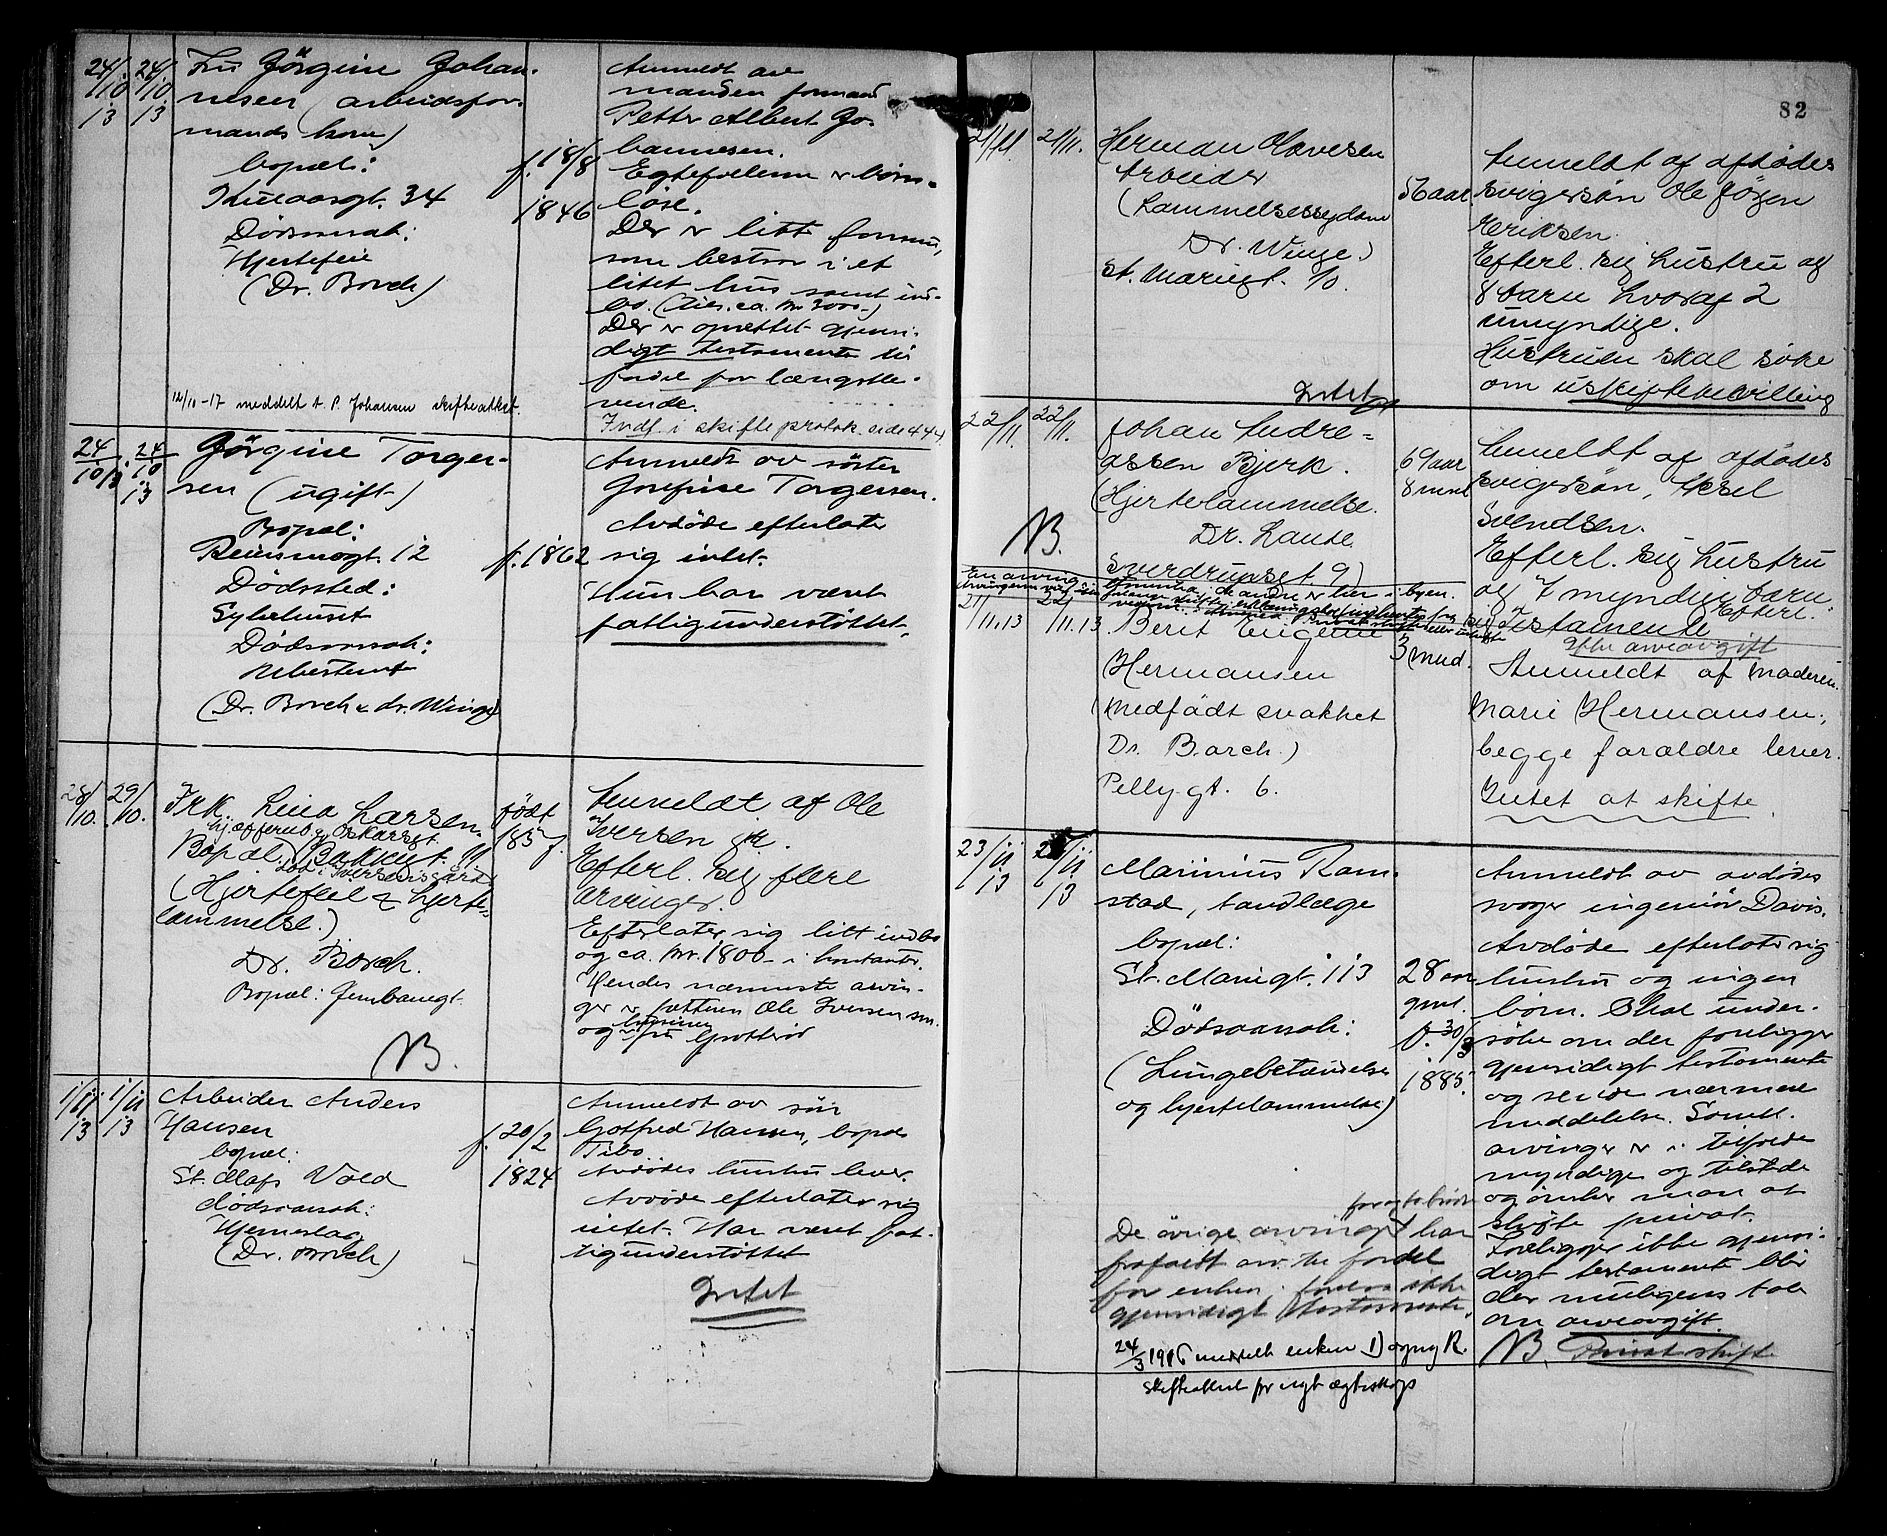 24/10 13 24/10 13 Fru Jörgine Johan-
nesen (arbeidsfor-
mands kone)
bopæl:
34
Dödsaarsak:
Hjertefeil
(Dr. Borch)
f. 18/8
1846
Anmeldt av
manden formand
Petter Albert Jo-
hannesen.
Egtefolkene er barn-
löse.
Der er litt formue,
som bestaar i et
litet hus samt ind-
bo. (Ties. ca. kr 3000.-)
Der er oprettet gjensi-
digt testamente til
fordel for længstle-
vende.
Indf. i skifteprotok. side 444
12/11-17 meddelt P. Johansen skifteattest.
24/10 13 24/10 13 Jörgine Torger-
sen (ugift)
Bopæl:
12
Dödssted:
Sykehuset
Dödsaarsak:
Ubestemt
(Dr. Borch & dr. Winge)
f. 1862
Anmeldt av söster
Josefine Torgersen.
Avdöde efterlater
sig intet.
Hun har været
fattigunderstöttet.
28/10. 29/10. Frk. Lina Larsen.
hj. af ferub og Oskarsgt.
Bopæl: Bakkegt. 11
i Iversensgaard
(Hjertefeil & hjerte-
lammelse.)
Dr. Borch.
Bopæl: Jernbanegt.
NB.
født
185
Anmeldt af Ole
Iversen jr.
Efterl. sig flere
arvinger.
Efterlater sig litt indbo
og ca. kr. 1800- i kontanter.
Hendes nærmeste arvin-
ger er fætteren Ole Iversen sen.
og kusinen fru Grotterød
1/11 13 1/11 13 Arbeider Anders
Hansen
bopæl:
St. Olafs Vold
dödsaarsak:
Hjerneslag
(Dr. Borch)
f. 20/2
1824
Anmeldt av sön
Gotfred Hansen, bopæl
Tibo
Avdödes hustru lever.
Avdöde efterlater sig
intet. Har været fat-
tigunderstöttet
Intet
82
21/11. 21/11. Herman Olavesen
Arbeider
(Lammelsessygdom
Dr. Winge)
St. Mariegt. 10.
56 aar
Anmeldt af afdødes
svigersøn Ole Jørgen
Eriksen.
Efterl. sig hustru og
8 barn hvoraf 2
umyndige.
Hustruen skal søke
om uskiftebevilling
Intet
22/11. 22/11. Johan Andre-
assen Bjerk.
(Hjertelammelse.
Dr. Lande.
Sverdrupsgt. 9)
NB.
69 aar
8 mnd
Anmeldt af afdødes
svigersøn, Aksel
Svendsen.
Efterl. sig hustru
og 7 myndige barn.
Efterl.
sig Testamente
Efter arveavgift
En arving i Amerika, de andre er her i byen.
21/11.13 22/11.13 Berit Eugenie
Hermansen
(Medfødt svakhet
Dr. Borch.)
Pellygt. 6.
3 mnd.
Anmeldt af moderen
Marie Hermansen,
begge forældre lever.
Intet at skifte
23/11 13 /11 13 Marinius Ram-
stad, tandlæge
bopæl:
St. Mariegt. 113
Dödsaarsak:
(Lungebetændelse
og hjertelammelse)
28 aar
gml.
f. 30/3
1885.
Anmeldt av avdödes
svoger ingeniör Davis.
Avdöde efterlot sig
hustru og ingen
börn. Skal under-
söke om der foreligger
gjensidigt testamente
og se ide nærmere
meddelelse. Samtl.
arvinger er i tilfælde
myndige og tilstede
og önsker man at
skifte privat.
Foreligger ikke gjensi-
digt testamente blir
der muligens tale
om arveavgift.
De övrige arvinger har
frafaldt arv til fordel
for enken, ikke
gjensidigt testamente.
24/3 1916 meddelt enken
skifteattest for ugt ægteskap
NB. Privat skifte